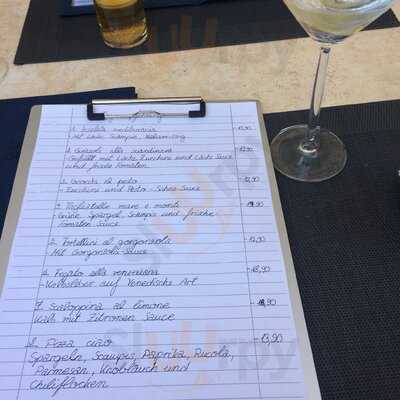 1. Insalata mediterranea
- Mit Lachs, Scampis,
-15,90
4. Gnocchi alla
- Gefüllt mit Lachs, Zucchini und Lachs Sauce
und frische Tomaten
-12,90
2. Gnocchi al pesto
- Zucchini und Pesto - Sahne Sauce
-12,90
3. Tagliatelle mare e monti
- Grüne Spargel, Scampis und frische
Tomaten Sauce
5. Tortellini al gorgonzola
- Mit Gorgonzola-Sauce
-12,90
6. Fegato alla veneziana
- Kalbsleber auf Venedische Art
-18,90
7. Scaloppina al limone
Kalb mit Zitronen Sauce
8. Pizza ciao
Spargeln, Scampis, Paprika, Rucola,
Parmesan, Knoblauch und
Chiliflocken
-13,90